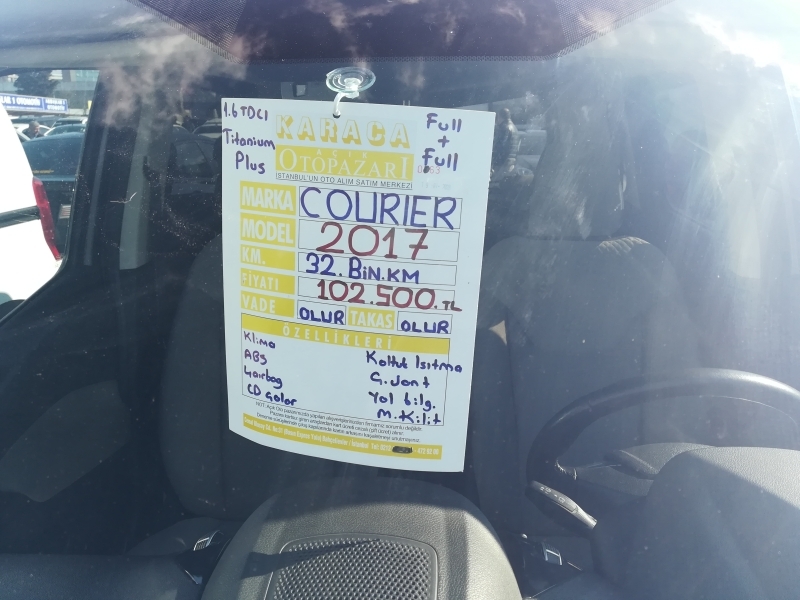 1.6 TDCI
Titanium
Plus
KARACA
OTOPAZARI
İSTANBUL'UN OTO ALIM SATIM MERKEZİ
Full
+
Full
MARKA COURIER
MODEL 2017
KM. 32.BİN.KM
FİYATI 102.500.TL
VADE OLUR TAKAS OLUR
ÖZELLİKLERİ
Klima
ABS
4airbag
CD Çalar
Koltuk Isıtma
Ç.Jant
Yol bilg.
M.Kilit